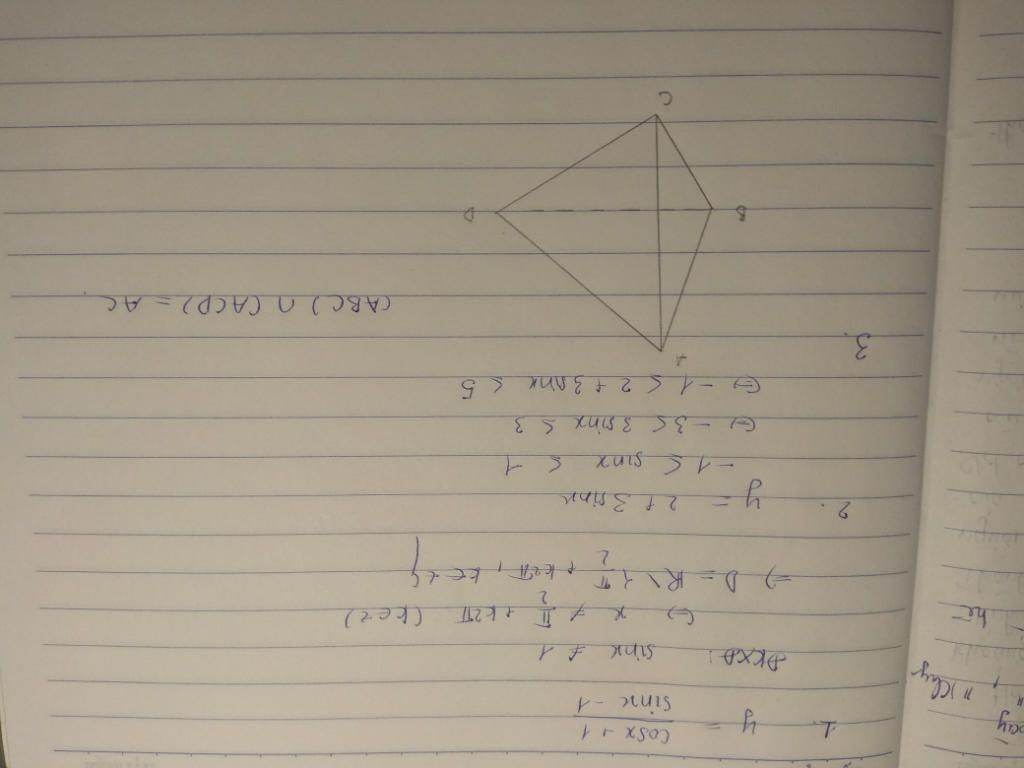 1. y = (cosx + 1)/(sinx - 1)
ĐKXĐ: sinx ≠ 1
⇔ x ≠ π/2 + k2π (k∈Z)
⇒ D = R \ { π/2 + k2π, k∈Z}
2. y = 2 + 3sinx
-1 ≤ sinx ≤ 1
⇔ -3 ≤ 3sinx ≤ 3
⇔ -1 ≤ 2 + 3sinx ≤ 5
3.
A
(ABC) ∩ (ACD) = AC.
B
D
C